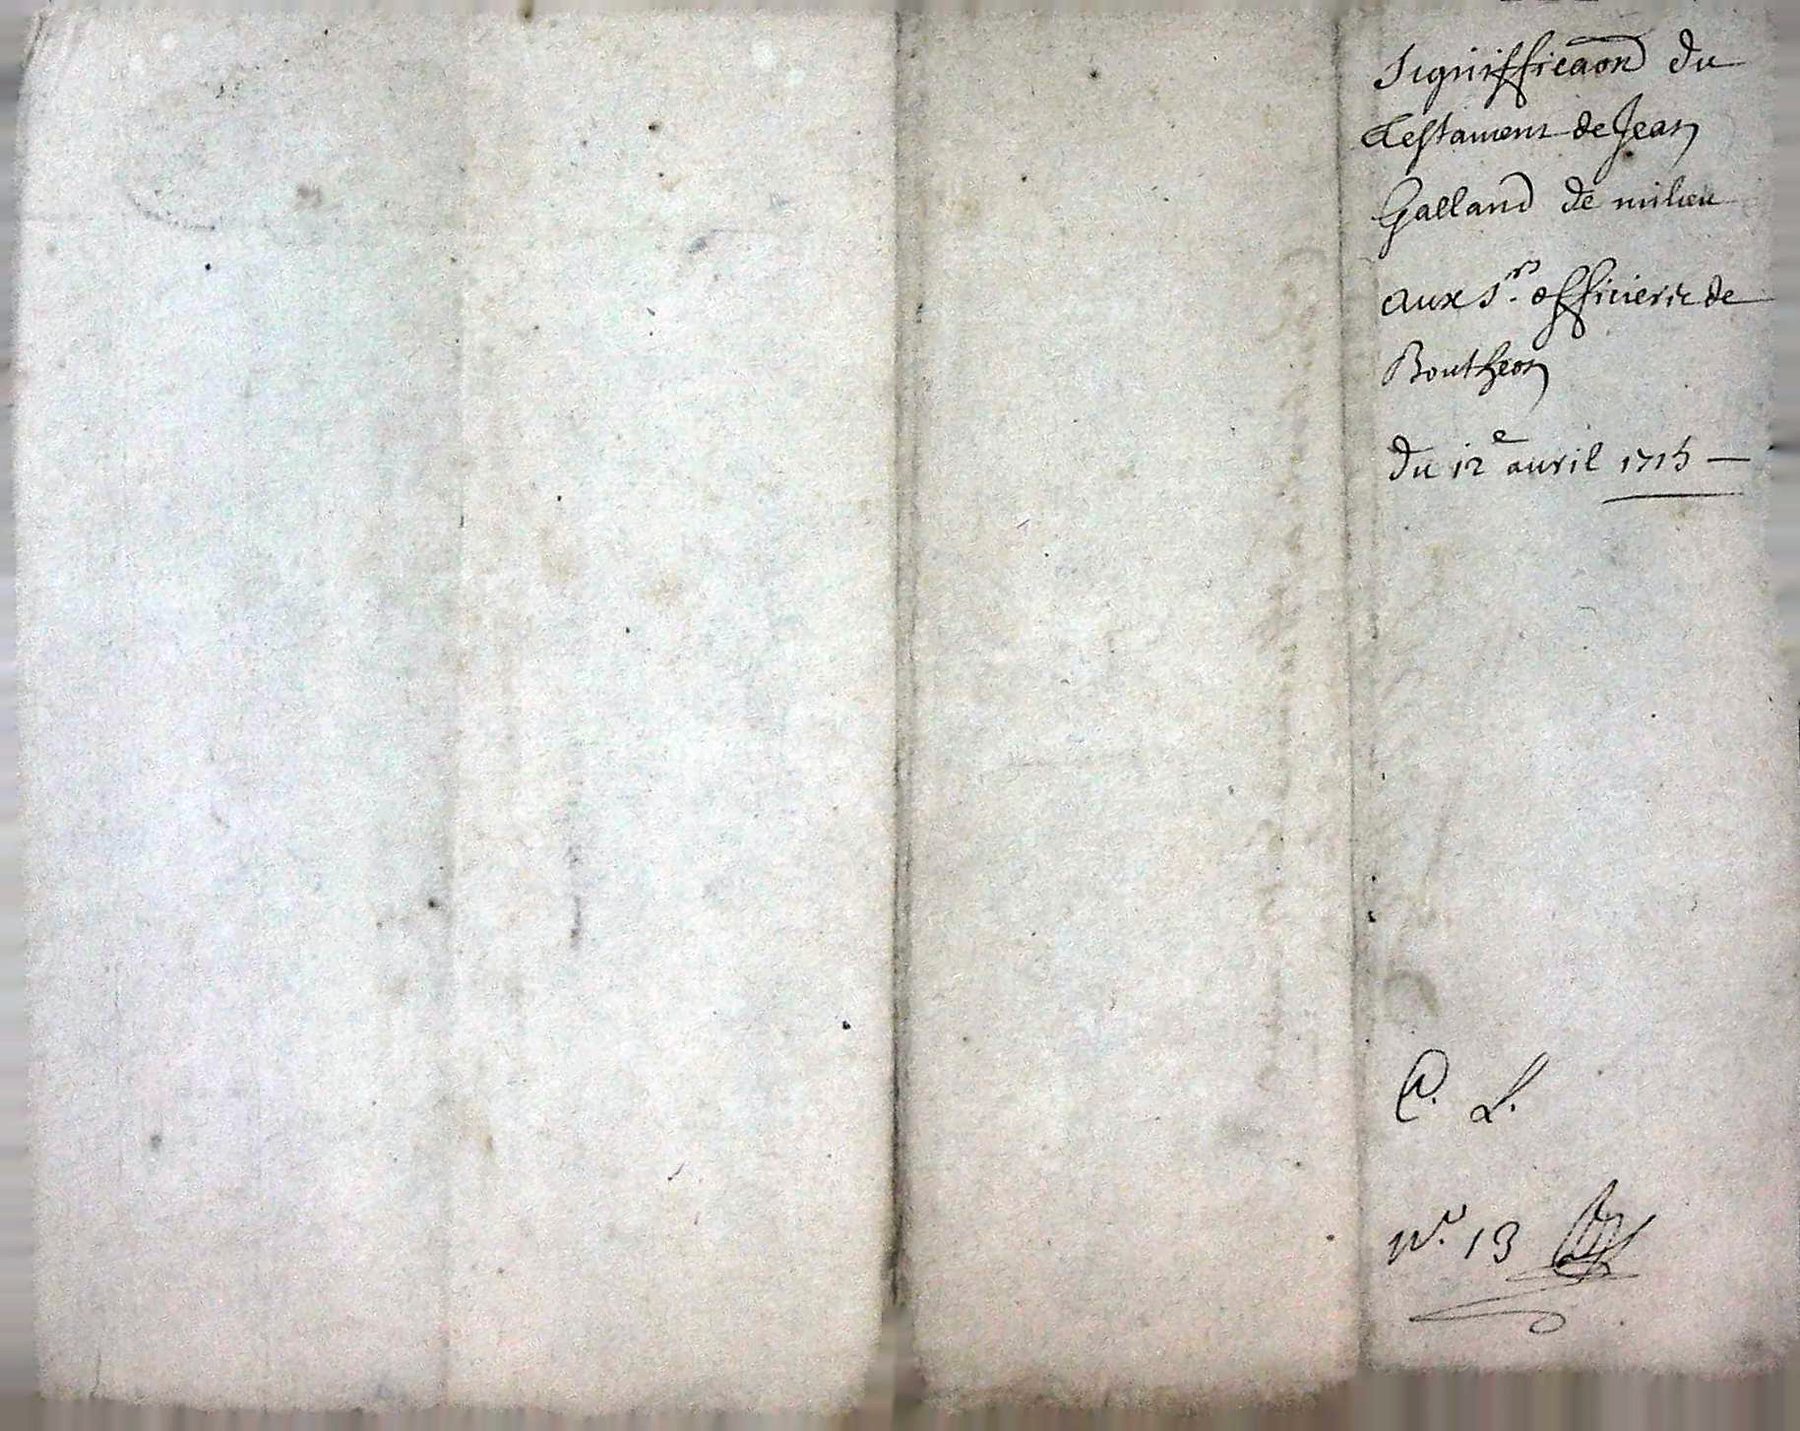 Signifficaon du
Testament de Jean
Galland de milieu
aux Srs officiers de
Boutheon
du 12e auril 1715 —
C. L.
No. 13